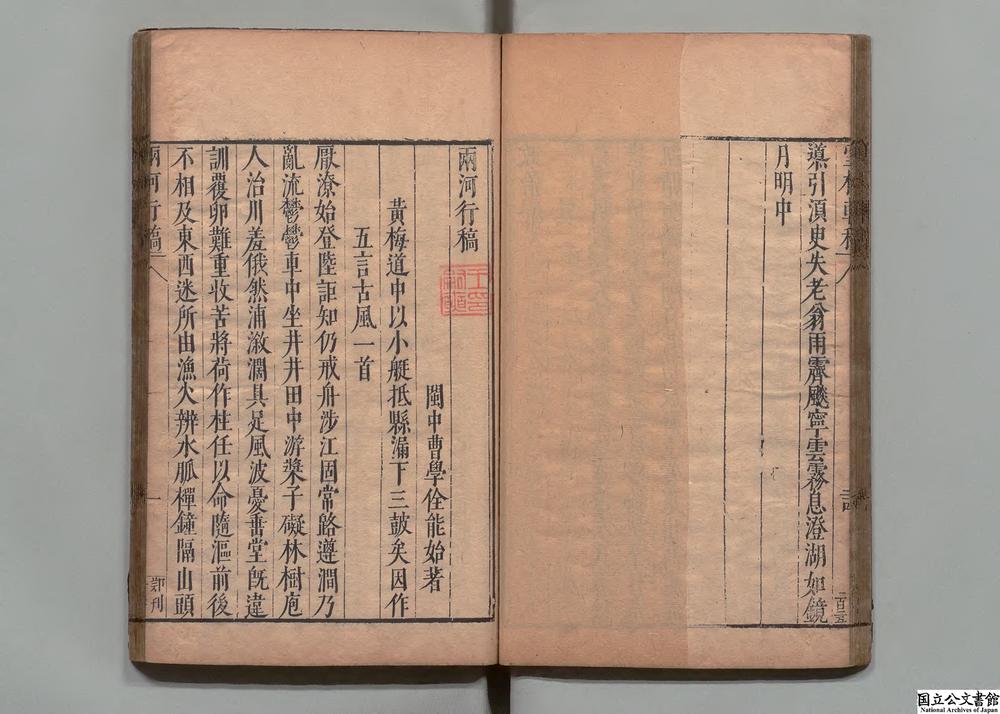 導引須史失老翁雨霽颷寧雲霧息澄湖如鏡
月明中
兩河行稿
閩中曹學佺能始著
黃梅道中以小艇抵縣漏下三鼓矣因作
五言古風一首
厭潦始登陸詎知仍戒舟涉江固常路遵澗乃
亂流鬱鬱車中坐井井田中游槳子礙林樹庖
人治川羞俄然浦漵濶具足風波憂垂堂既違
訓覆卵難重收苦將荷作柱任以命隨漚前後
不相及東西迷所由漁火辨水脈樿鐘隔山頭
兩河行稿
一
刊
国立公文書館
National Archives of Japan